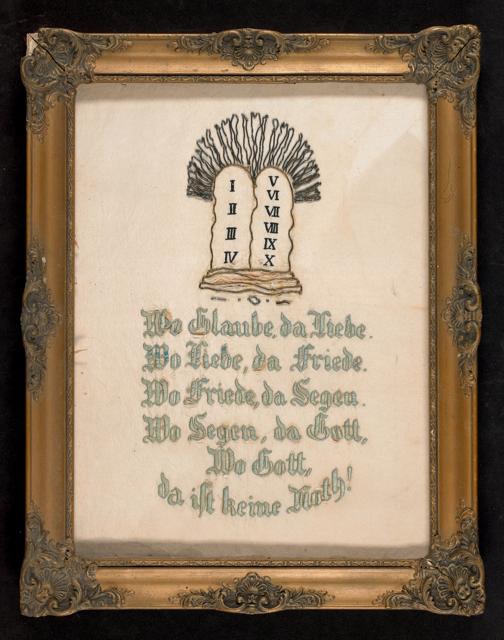 I
II
III
IV
V
VI
VII
VIII
IX
X
Wo Glaube, da Liebe.
Wo Liebe, da Friede.
Wo Friede, da Segen.
Wo Segen, da Gott,
Wo Gott,
da ist keine Noth!